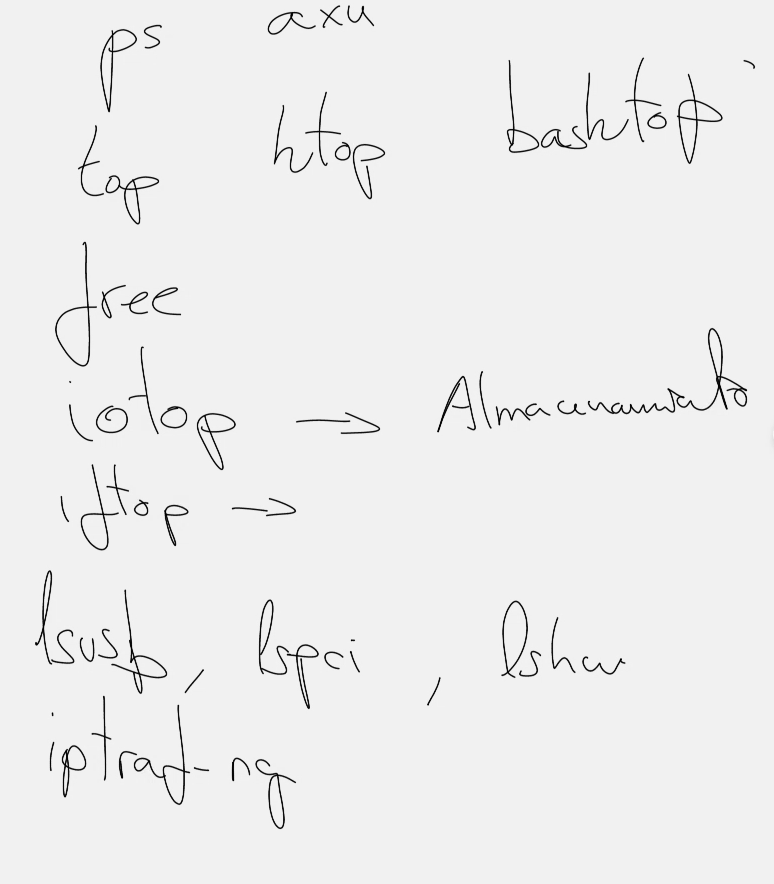 ps axu
top htop bashtop
free
iotop → Almacenamiento
iftop →
lsusb, lspci, lshw
iptraf-ng